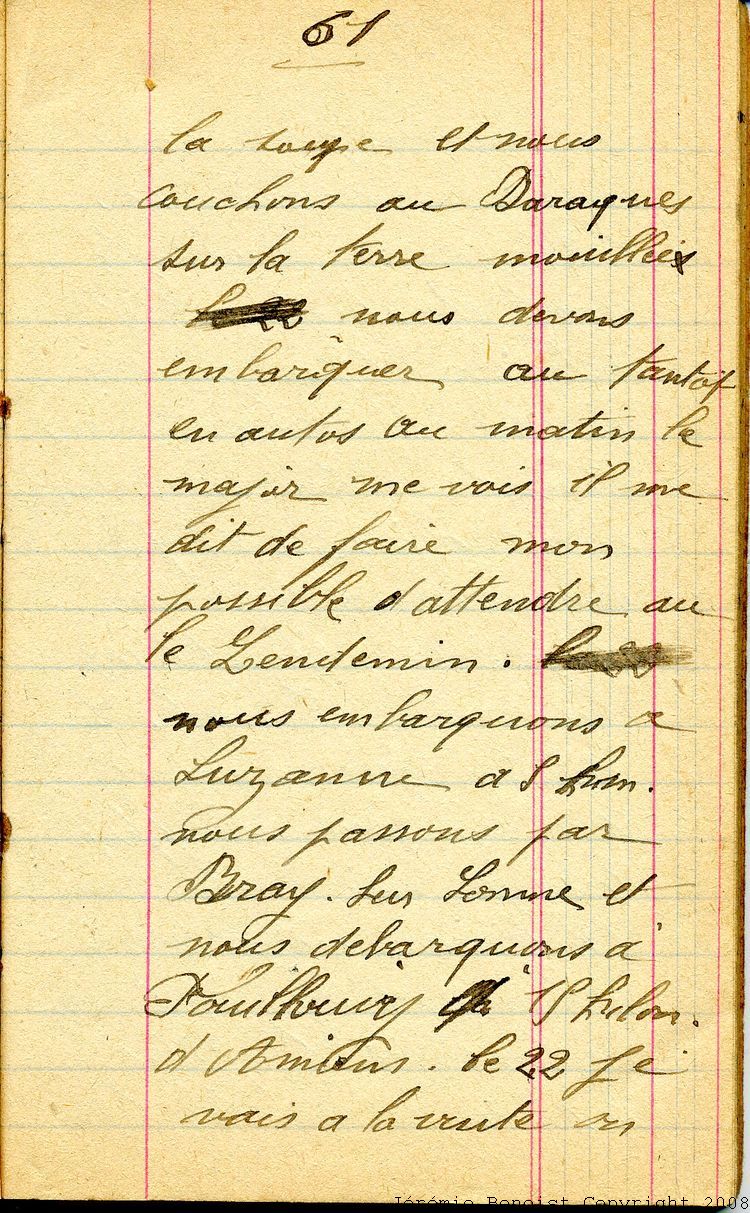 61
la soupe et nous
couchons au Baraques
sur la terre mouillée
nous devons
embarquer au tantot
en autos au matin le
major me vois il me
dit de faire mon
possible d'attendre au
le Lendemin.
nous embarquons a
Suzanne a hm.
nous passons par
Bray. sur Somme et
nous debarquons à
à
d'Amiens. le 22 je
vais a la visite on
Jérémie Benoist Copyright 2008